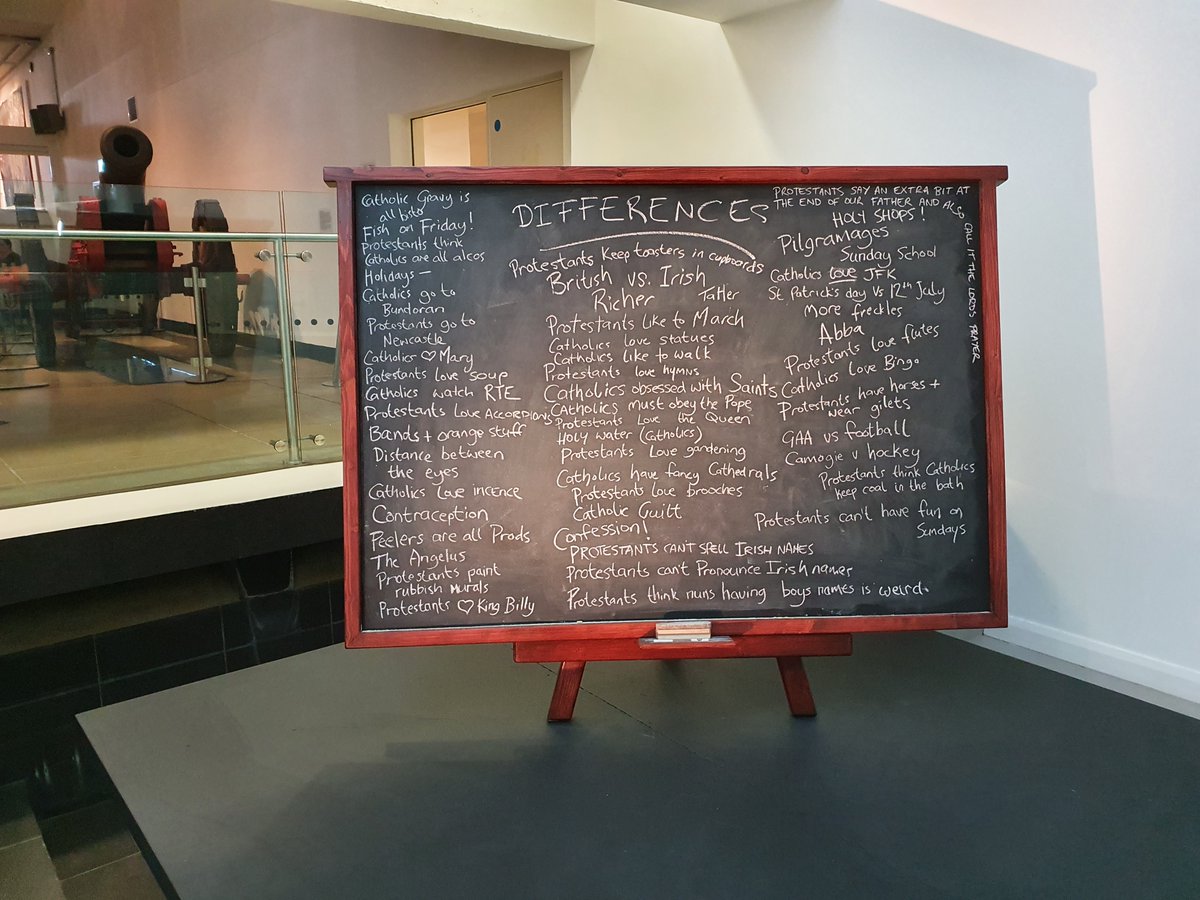 Catholic Gravy is
all bisto
Fish on Friday!
Protestants think
Catholics are all alcos
Holidays –
Catholics go to
Bundoran
Protestants go to
Newcastle
Catholics ♡ Mary
Protestants love soup
Catholics watch RTE
Protestants Love ACCORDIONS
Bands + orange stuff
Distance between
the eyes
Catholics Love incence
Contraception
Peelers are all Prods
The Angelus
Protestants paint
rubbish murals
Protestants ♡ King Billy
DIFFERENCES
Protestants Keep toasters in cupboards
British vs. Irish
Richer Taller
Protestants like to March
Catholics love statues
Catholics like to walk
Protestants love hymns
Catholics obsessed with Saints
CAtholics must obey the Pope
Protestants Love the Queen
HOly water (Catholics)
Protestants Love gardening
Catholics have fancy Cathedrals
Protestants love brooches
Catholic Guilt
Confession!
PROTESTANTS CAN'T SPELL IRISH NAMES
Protestants can't Pronounce Irish names
Protestants think nuns having boys names is weird.
PROTESTANTS SAY AN EXTRA BIT AT
THE END OF OUR FATHER AND ALSO
CALL IT THE LORDS PRAYER
HOLY SHOPS!
Pilgramages
Sunday School
Catholics Love JFK
St Patrick's day Vs 12th July
More freckles
Abba
Protestants love flutes
Catholics Love Bingo
Protestants have horses +
wear gilets
GAA vs football
Camogie v hockey
Protestants think Catholics
keep coal in the bath
Protestants can't have fun on
Sundays